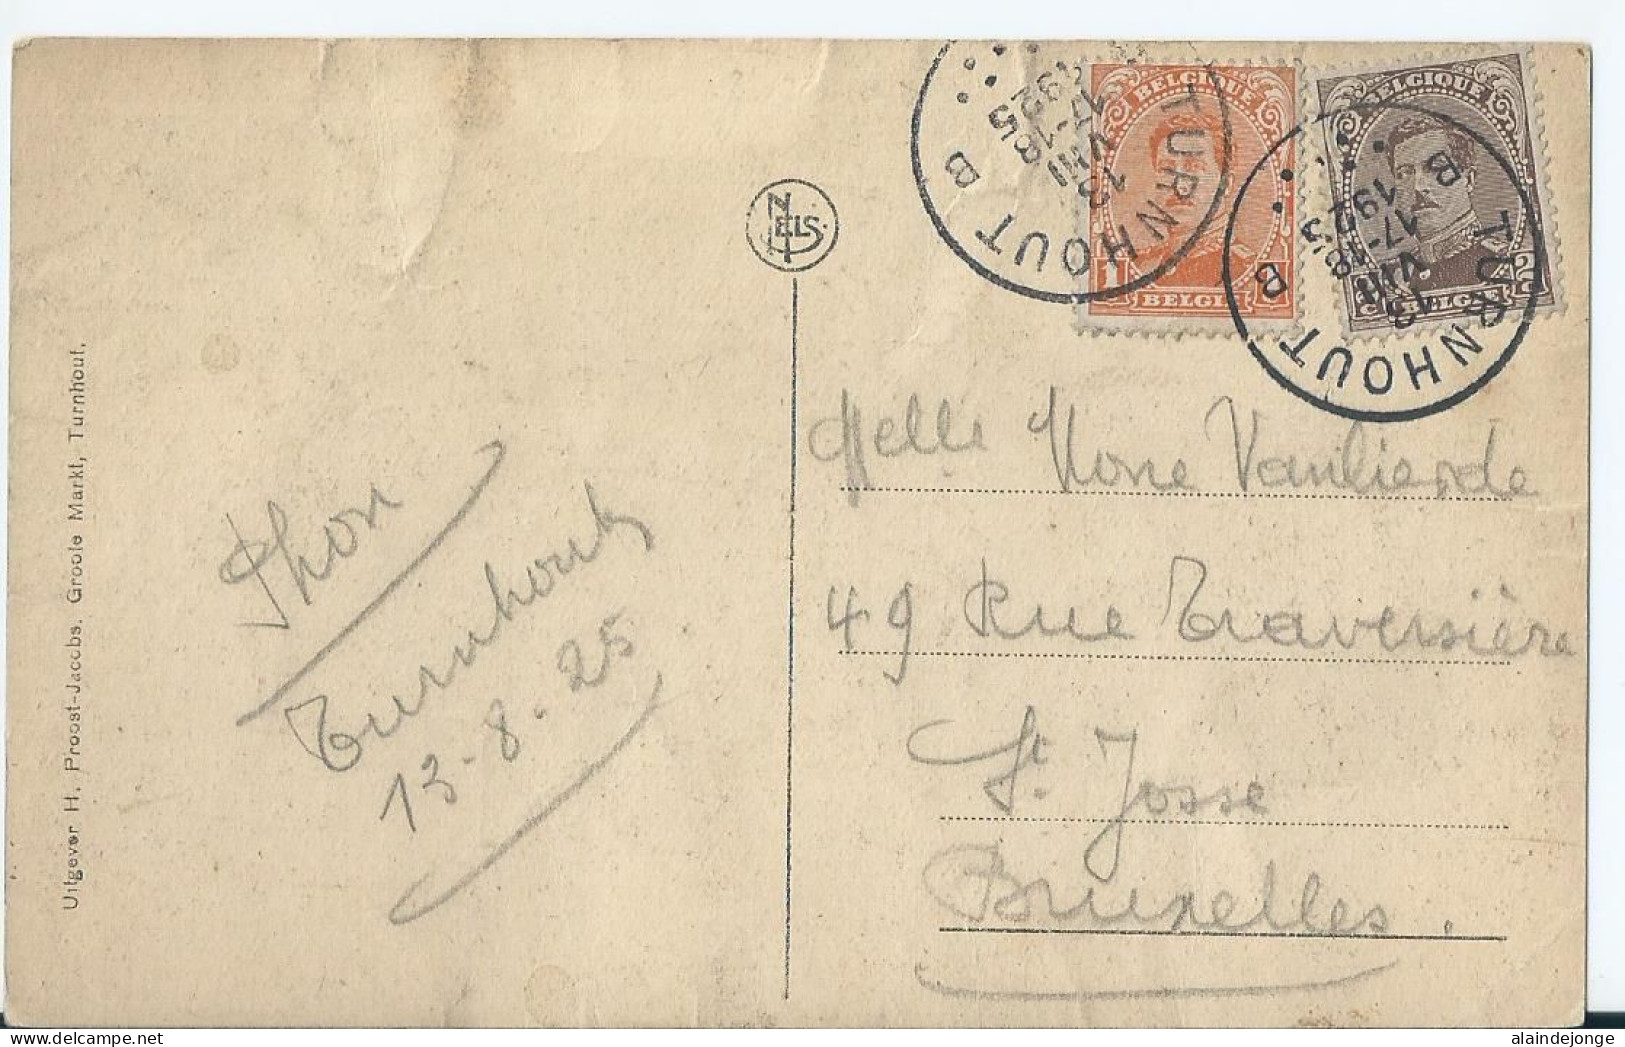 Uitgever H. Proost-Jacobs. Groote Markt, Turnhout.
NELS
BELGIQUE
1 1
BELGIË
BELGIQUE
BELGIE
TURNHOUT
B
13
VIII
17-18
1925
TURNHOUT
B B
13
VIII
17-18
1925
Turnhout
13-8-25
Melle Vanlierde
49 Rue Traversière
St Josse
Bruxelles.
alaindejonge